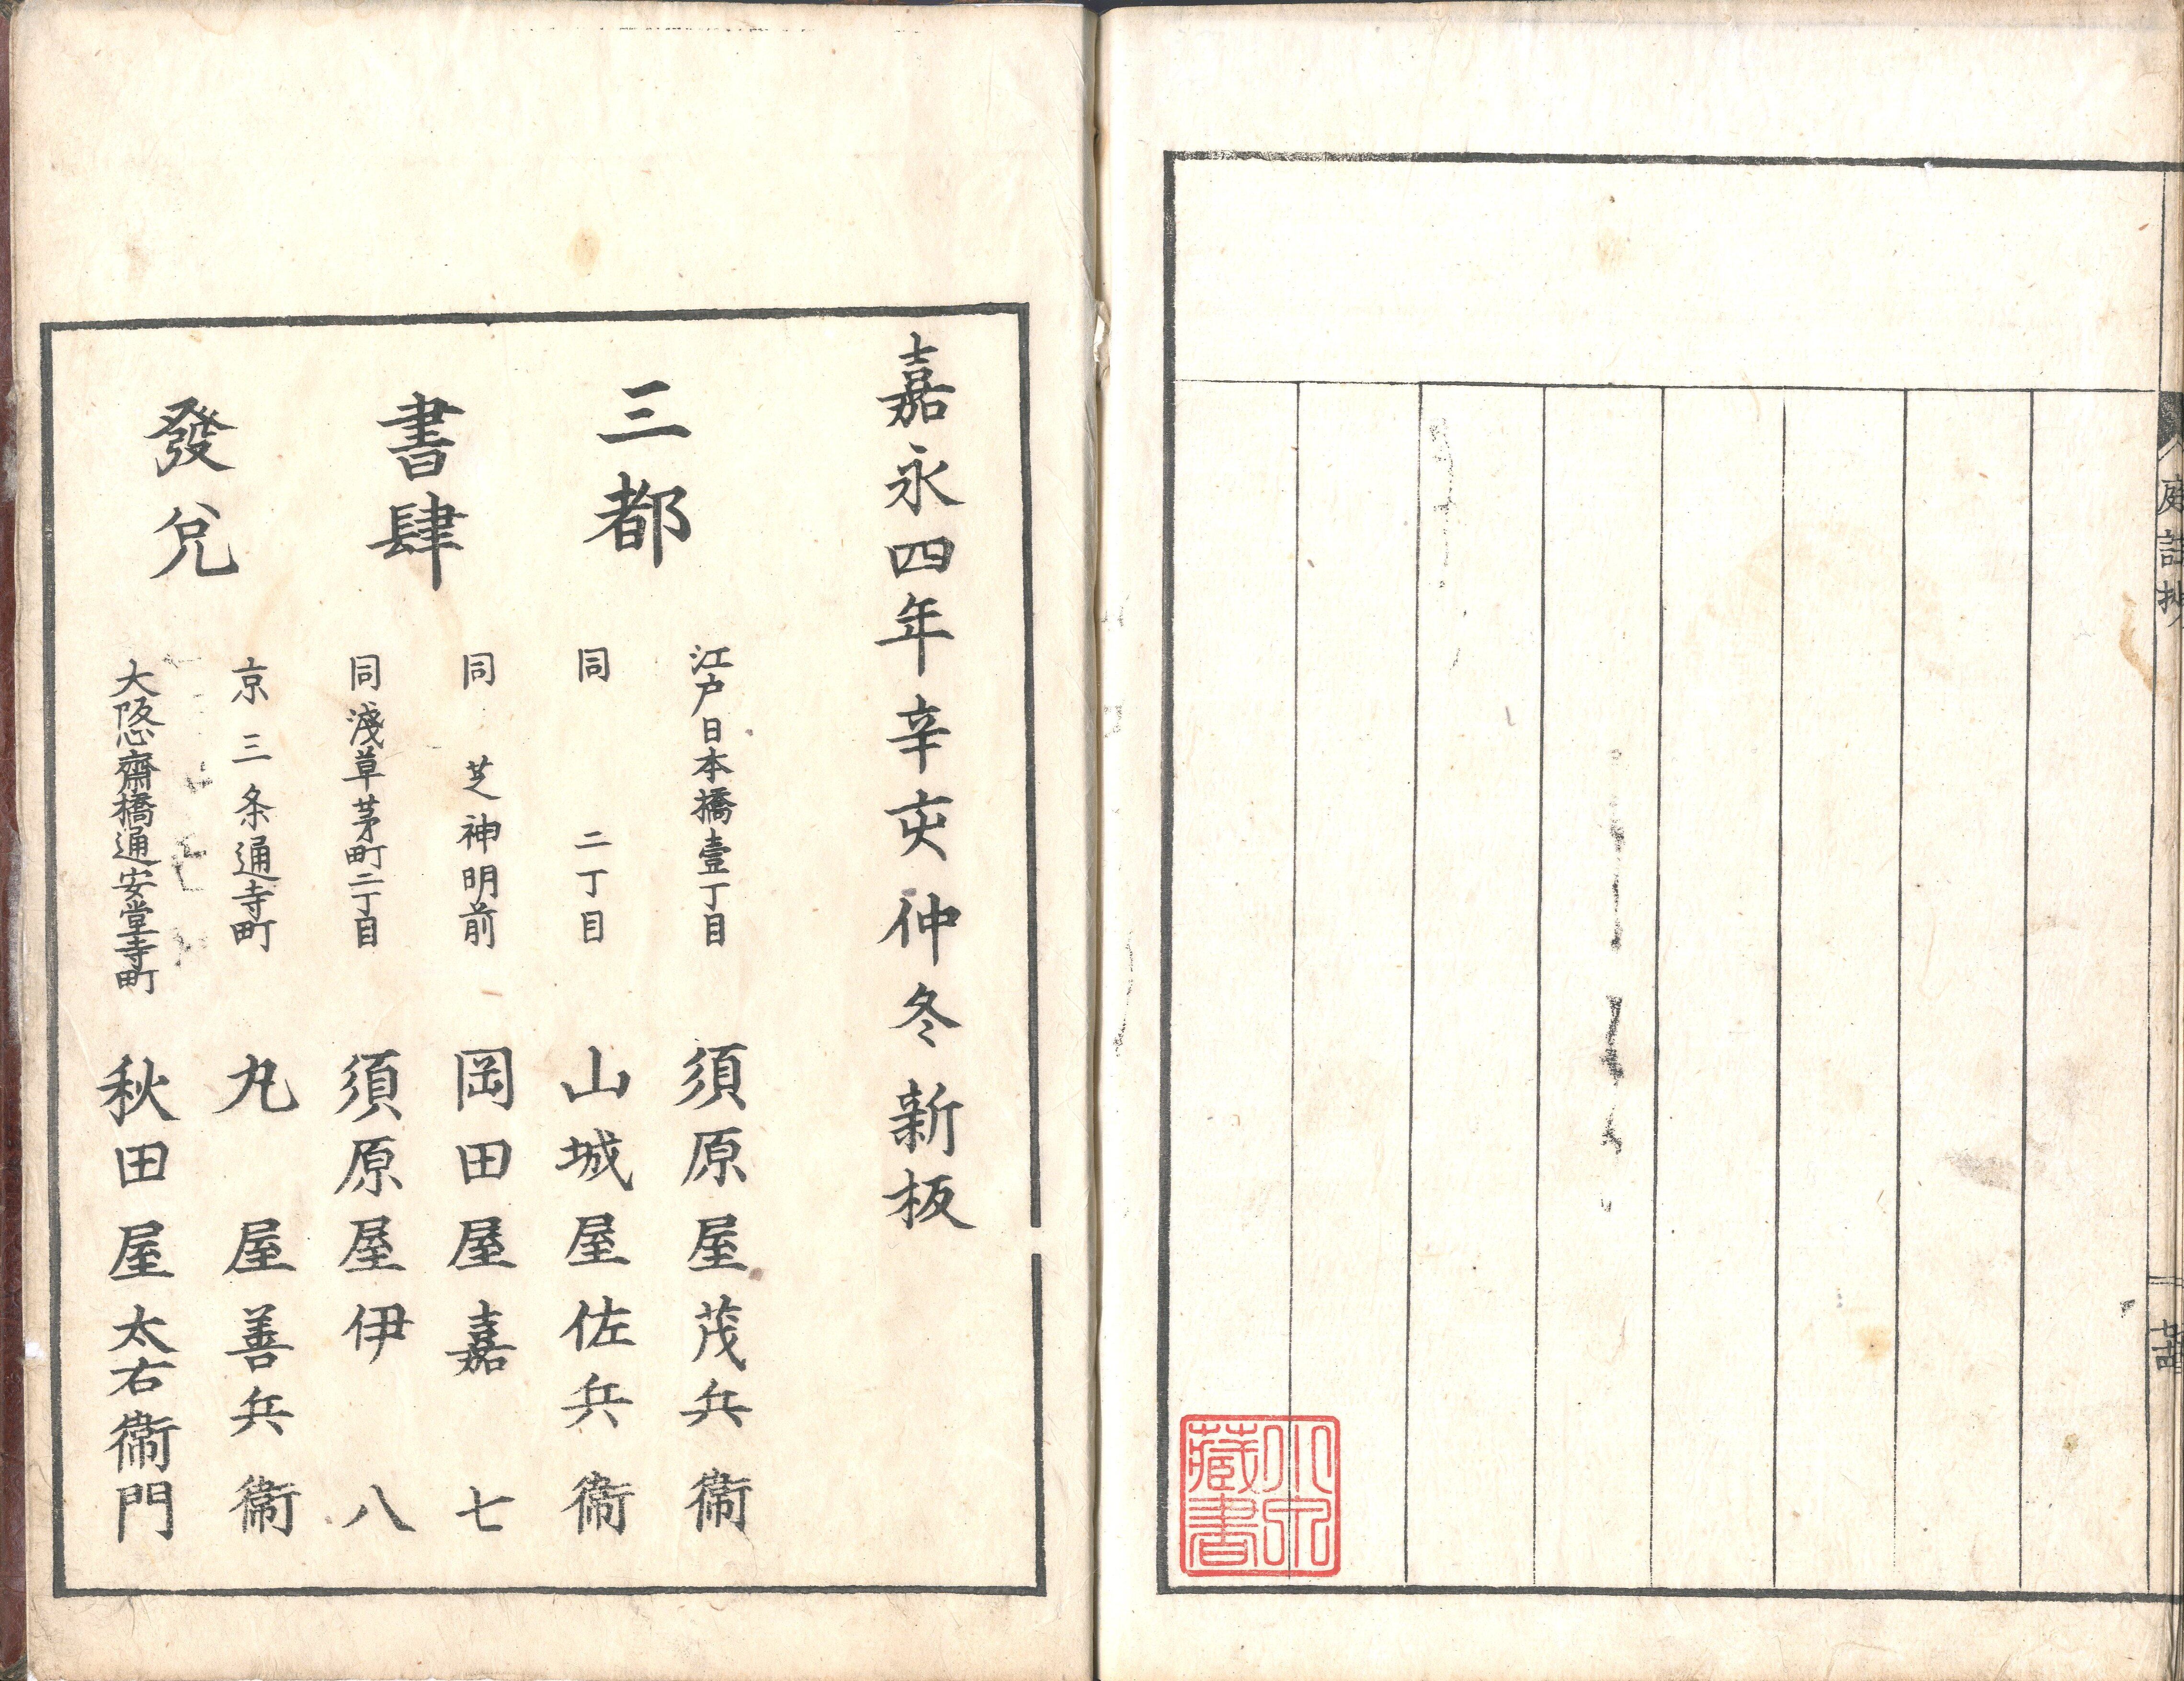 庭訓抄
七十四
小泉藏書
嘉永四年辛亥仲冬新板
三都
書肆
發兌
江戸日本橋壹丁目 須原屋茂兵衞
同 二丁目 山城屋佐兵衞
同 芝神明前 岡田屋嘉七
同淺草茅町二丁目 須原屋伊八
京三条通寺町 丸屋善兵衞
大阪心齋橋通安堂寺町 秋田屋太右衞門